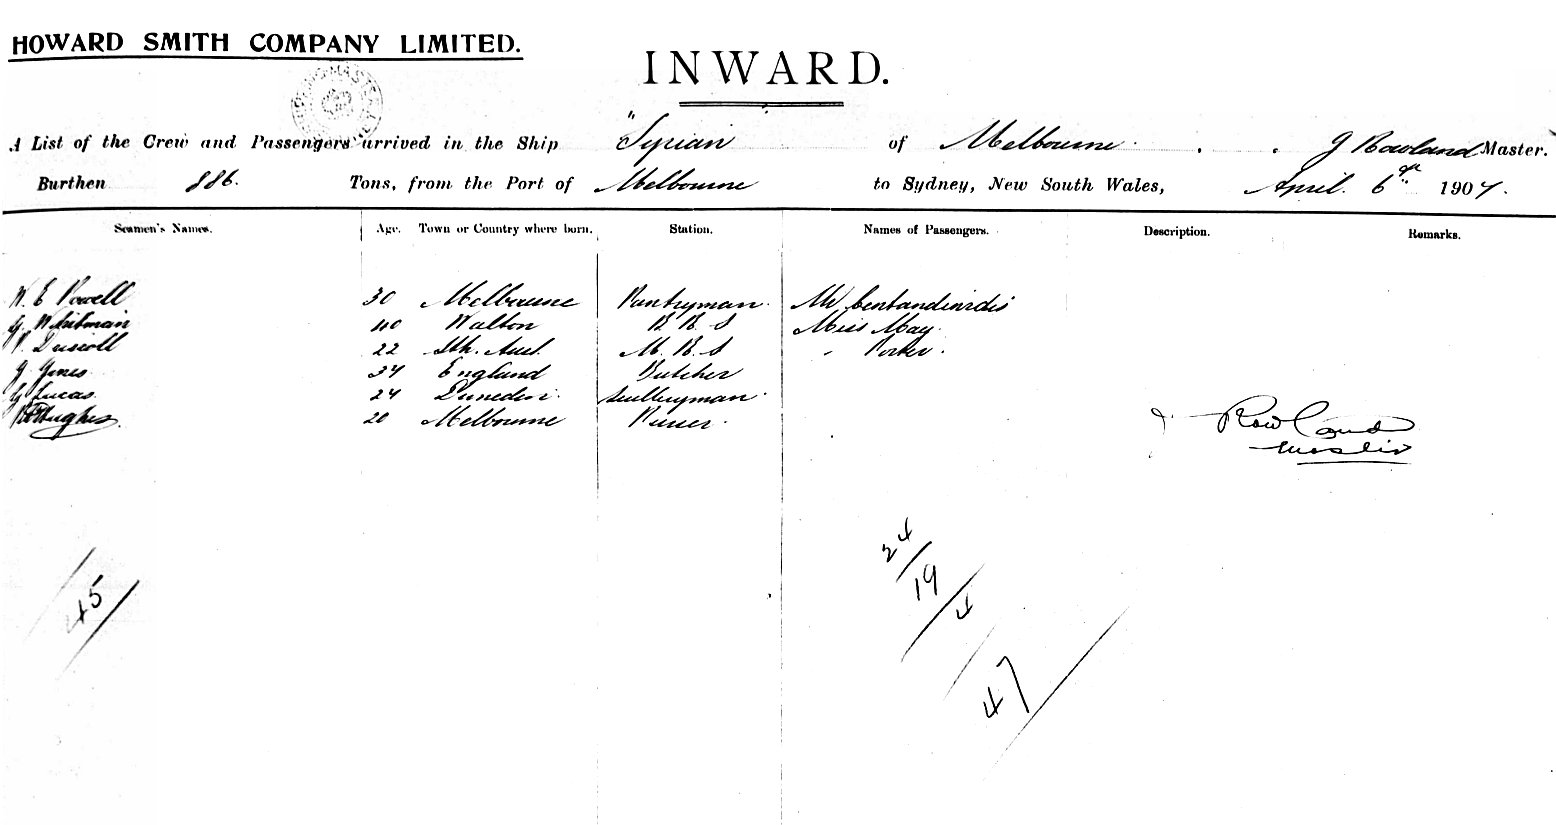 HOWARD SMITH COMPANY LIMITED.
INWARD.
A List of the Crew and Passengers arrived in the Ship "Syrian of Melbourne J Rowland Master.
Burthen 886. Tons, from the Port of Melbourne to Sydney, New South Wales, April 6th 1907.
Seamen's Names. Age. Town or Country where born. Station. Names of Passengers. Description. Remarks.
W. E Powell 30 Melbourne Pantryman. Mr
G. Whitman 40 Walton B R S Miss May
Driscoll 22 Sth. Aust. M. R. S " Porter.
J. Jones 34 England Butcher
G Lucas. 24 Dunedin. Scullyman.
Hughes. 20 Melbourne Purser.
J. Rowland
Master
45
24
19
4
47